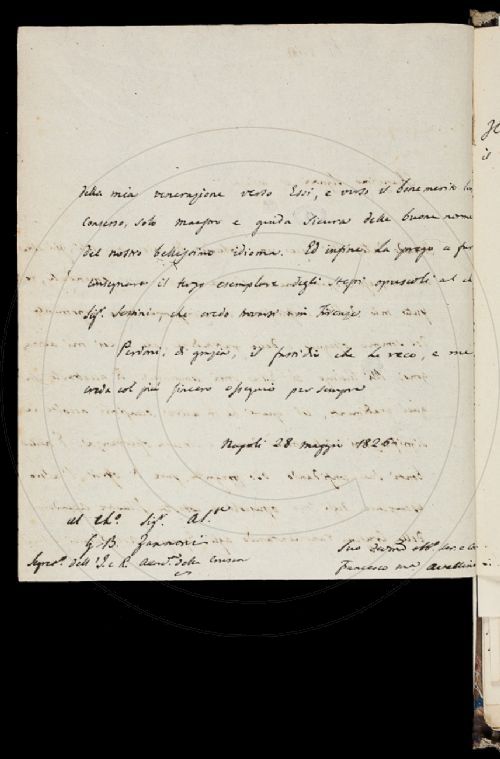 della mia venerazione verso Essi, e verso il benemerito lor
Consesso, solo maestro e guida sicura delle buone norme
del nostro bellissimo idioma. Ed infine La prego a far
consegnare il terzo esemplare degli stessi opuscoli al ch
Sigr. Sestini, che credo trovarsi in Firenze.
Perdoni, di grazia, il fastidio che Le reco, e me
creda col più sincero ossequio per sempre
Napoli 28 maggio 1826
al Ch.o Sigr. Ab.te
G. B. Zannoni
Segret.o dell' I. e R. Accad.a della Crusca
Suo
Francesco Ma Avellino